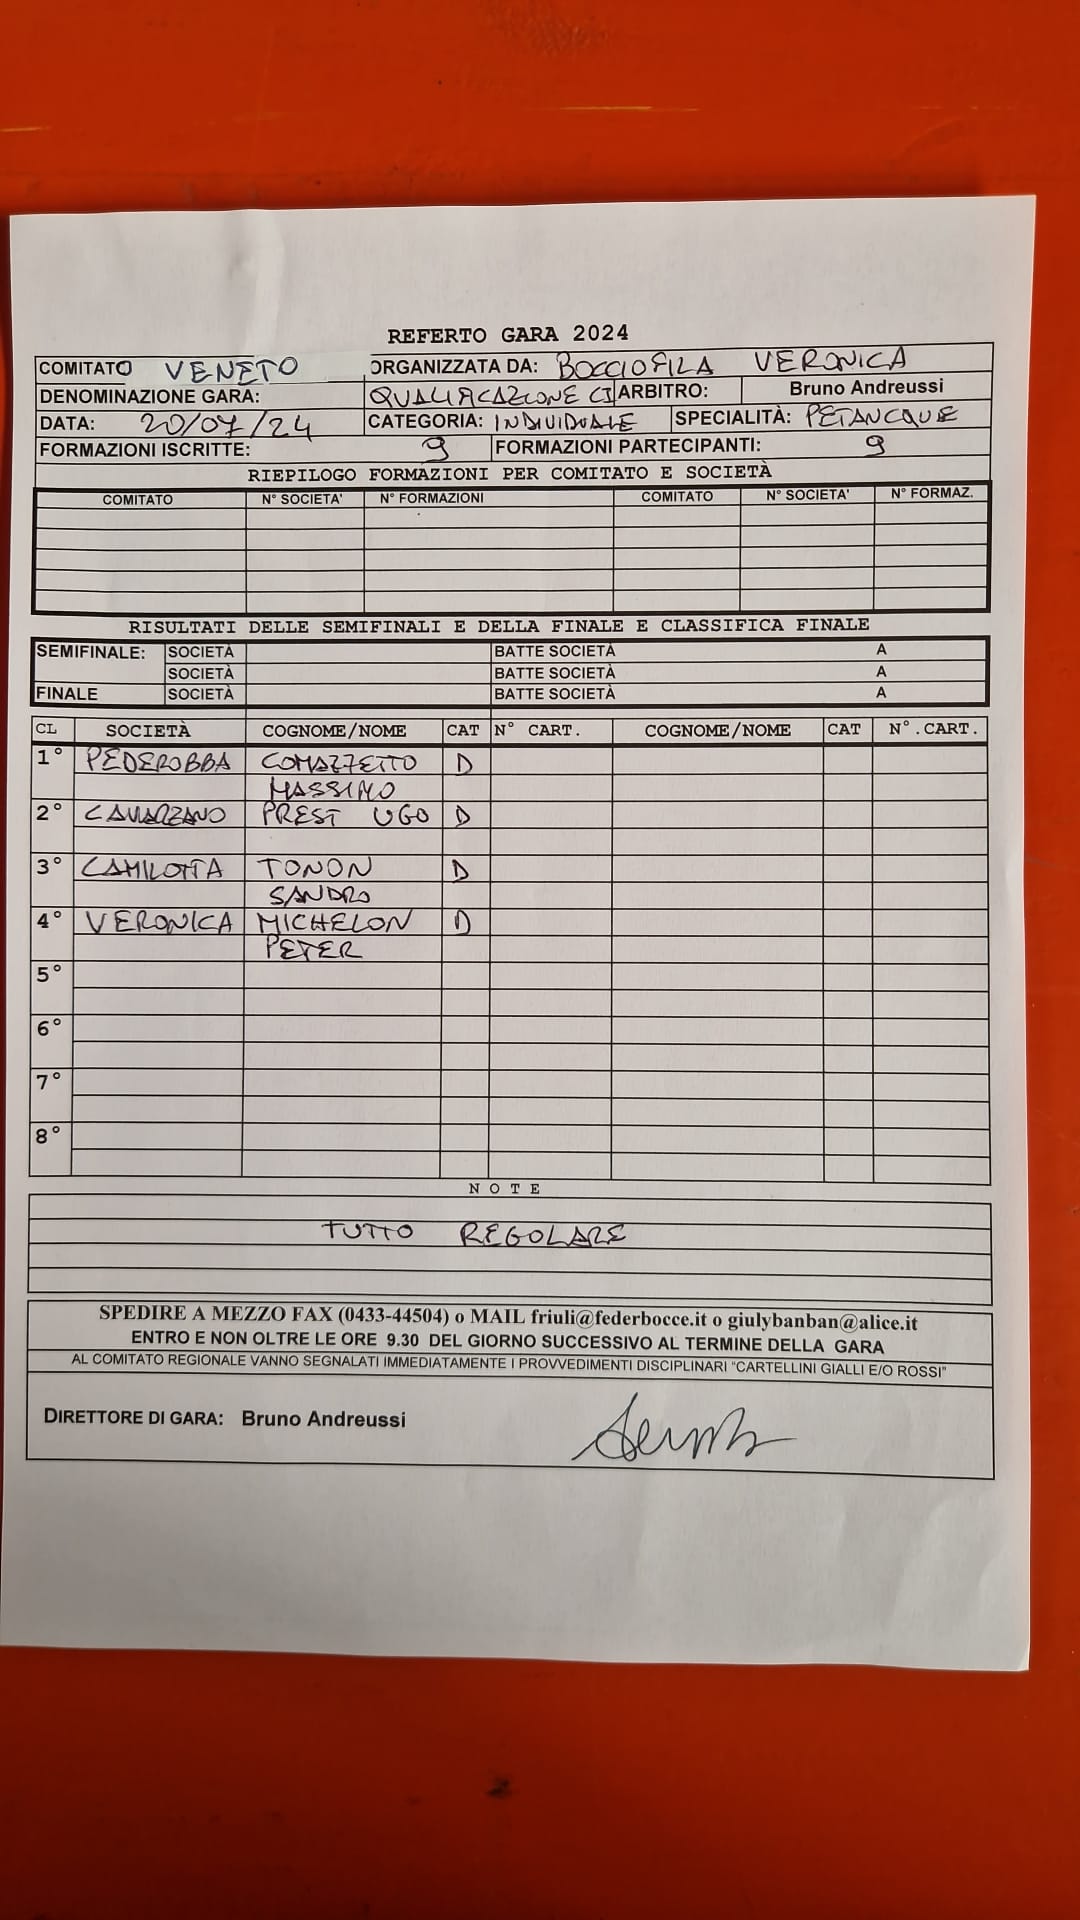 REFERTO GARA 2024
COMITATO VENETO ORGANIZZATA DA: BOCCIOFILA VERONICA
DENOMINAZIONE GARA: QUALIFICAZIONE CI ARBITRO: Bruno Andreussi
DATA: 20/07/24 CATEGORIA: INDIVIDUALE SPECIALITÀ: PETANCQUE
FORMAZIONI ISCRITTE: 9 FORMAZIONI PARTECIPANTI: 9
RIEPILOGO FORMAZIONI PER COMITATO E SOCIETÀ
COMITATO N° SOCIETA' N° FORMAZIONI COMITATO N° SOCIETA' N° FORMAZ.
RISULTATI DELLE SEMIFINALI E DELLA FINALE E CLASSIFICA FINALE
SEMIFINALE: SOCIETÀ BATTE SOCIETÀ A
SOCIETÀ BATTE SOCIETÀ A
FINALE SOCIETÀ BATTE SOCIETÀ A
CL SOCIETÀ COGNOME/NOME CAT N° CART. COGNOME/NOME CAT N°.CART.
1° PEDEROBBA COMAZZETTO D
MASSIMO
2° PREST UGO D
3° CAMILOTTA TONON D
SANDRO
4° VERONICA MICHELON D
PETER
5°
6°
7°
8°
NOTE
TUTTO REGOLARE
SPEDIRE A MEZZO FAX (0433-44504) o MAIL friuli@federbocce.it o giulybanban@alice.it
ENTRO E NON OLTRE LE ORE 9.30 DEL GIORNO SUCCESSIVO AL TERMINE DELLA GARA
AL COMITATO REGIONALE VANNO SEGNALATI IMMEDIATAMENTE I PROVVEDIMENTI DISCIPLINARI "CARTELLINI GIALLI E/O ROSSI"
DIRETTORE DI GARA: Bruno Andreussi